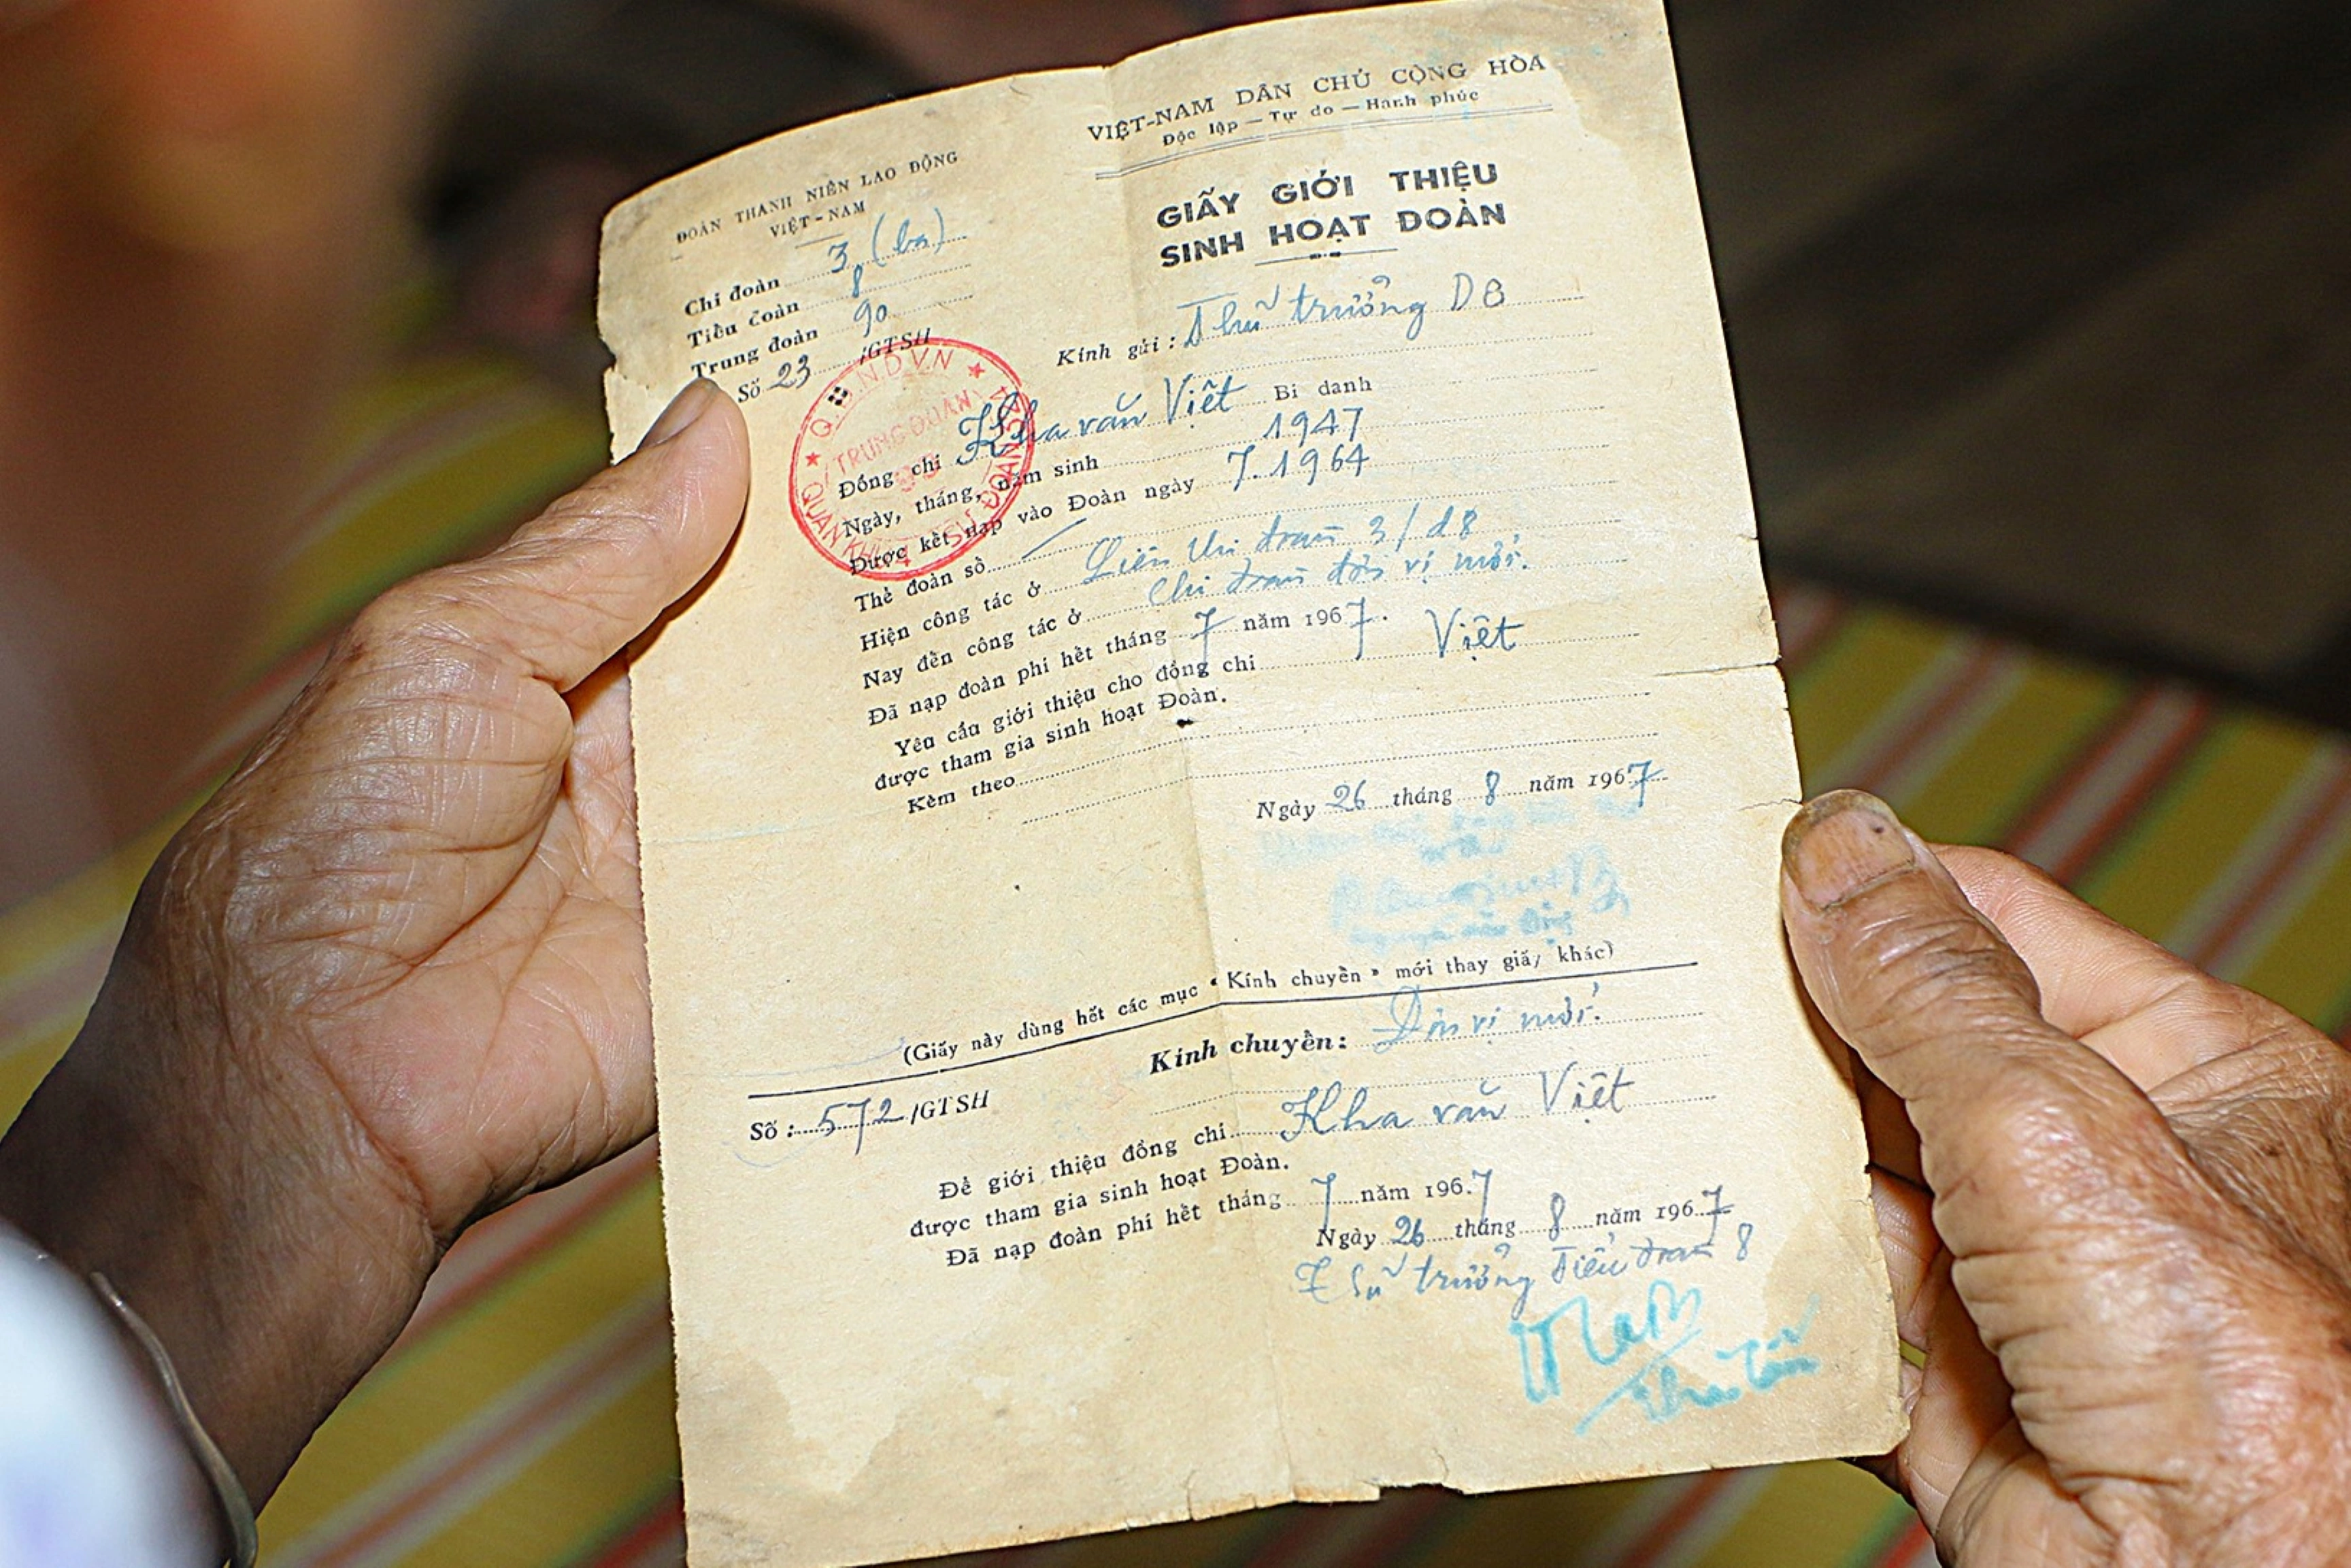 VIỆT-NAM DÂN CHỦ CỘNG HÒA
Độc lập — Tự do — Hạnh phúc
ĐOÀN THANH NIÊN LAO ĐỘNG
VIỆT-NAM
GIẤY GIỚI THIỆU
SINH HOẠT ĐOÀN
Chi đoàn 3 (ba)
Tiểu đoàn 8
Trung đoàn 90
Số 23 /GTSH
Kính gửi: Thủ trưởng D8
Q.Đ.N.D.V.N
TRUNG ĐOÀN
QUÂN KHU SƯ ĐOÀN
Đồng chí Kha văn Việt Bí danh
Ngày, tháng, năm sinh 1947
Được kết nạp vào Đoàn ngày 7.1964
Thẻ đoàn số
Hiện công tác ở Liên chi đoàn 3/d8
Nay đến công tác ở Chi đoàn đơn vị mới.
Đã nạp đoàn phí hết tháng 7 năm 1967.
Yêu cầu giới thiệu cho đồng chí Việt
được tham gia sinh hoạt Đoàn.
Kèm theo
Ngày 26 tháng 8 năm 1967
(Giấy này dùng hết các mục « Kính chuyển » mới thay giấy khác)
Kính chuyển: Đơn vị mới.
Số: 572/GTSH
Để giới thiệu đồng chí Kha văn Việt
được tham gia sinh hoạt Đoàn.
Đã nạp đoàn phí hết tháng 7 năm 1967
Ngày 26 tháng 8 năm 1967
Thủ trưởng Tiểu đoàn 8